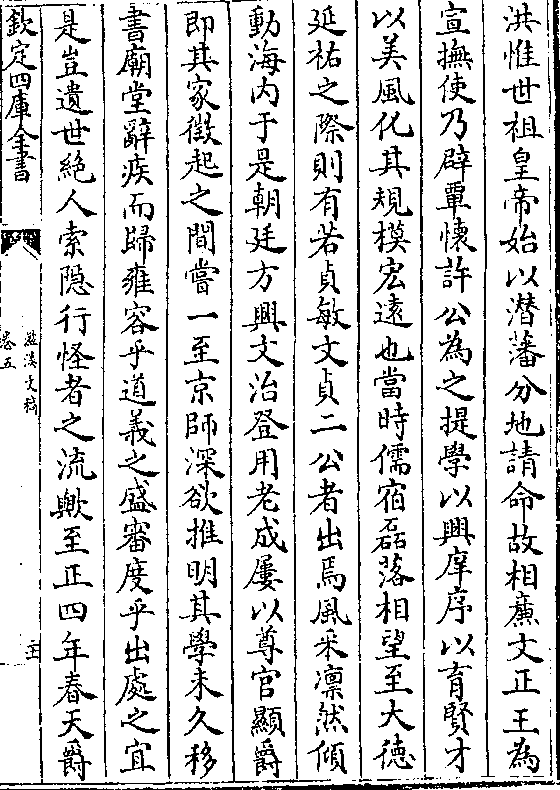 洪惟世祖皇帝始以潜藩分地請命故相亷文正王為
宣撫使乃辟覃懷許公為之提學以興庠序以育賢才
以美風化其規模宏遠也當時儒宿磊落相望至大徳
延祐之際則有若貞敏文貞二公者出焉風采凛然傾
動海内于是朝廷方興文治登用老成屢以尊官顯爵
即其家徴起之間嘗一至京師深欲推明其學未久移
書廟堂辭疾而歸雍容乎道義之盛審度乎出處之宜
是豈遺世絶人索隠行怪者之流歟至正四年春天爵
欽定四庫全書
滋溪文稿
卷五